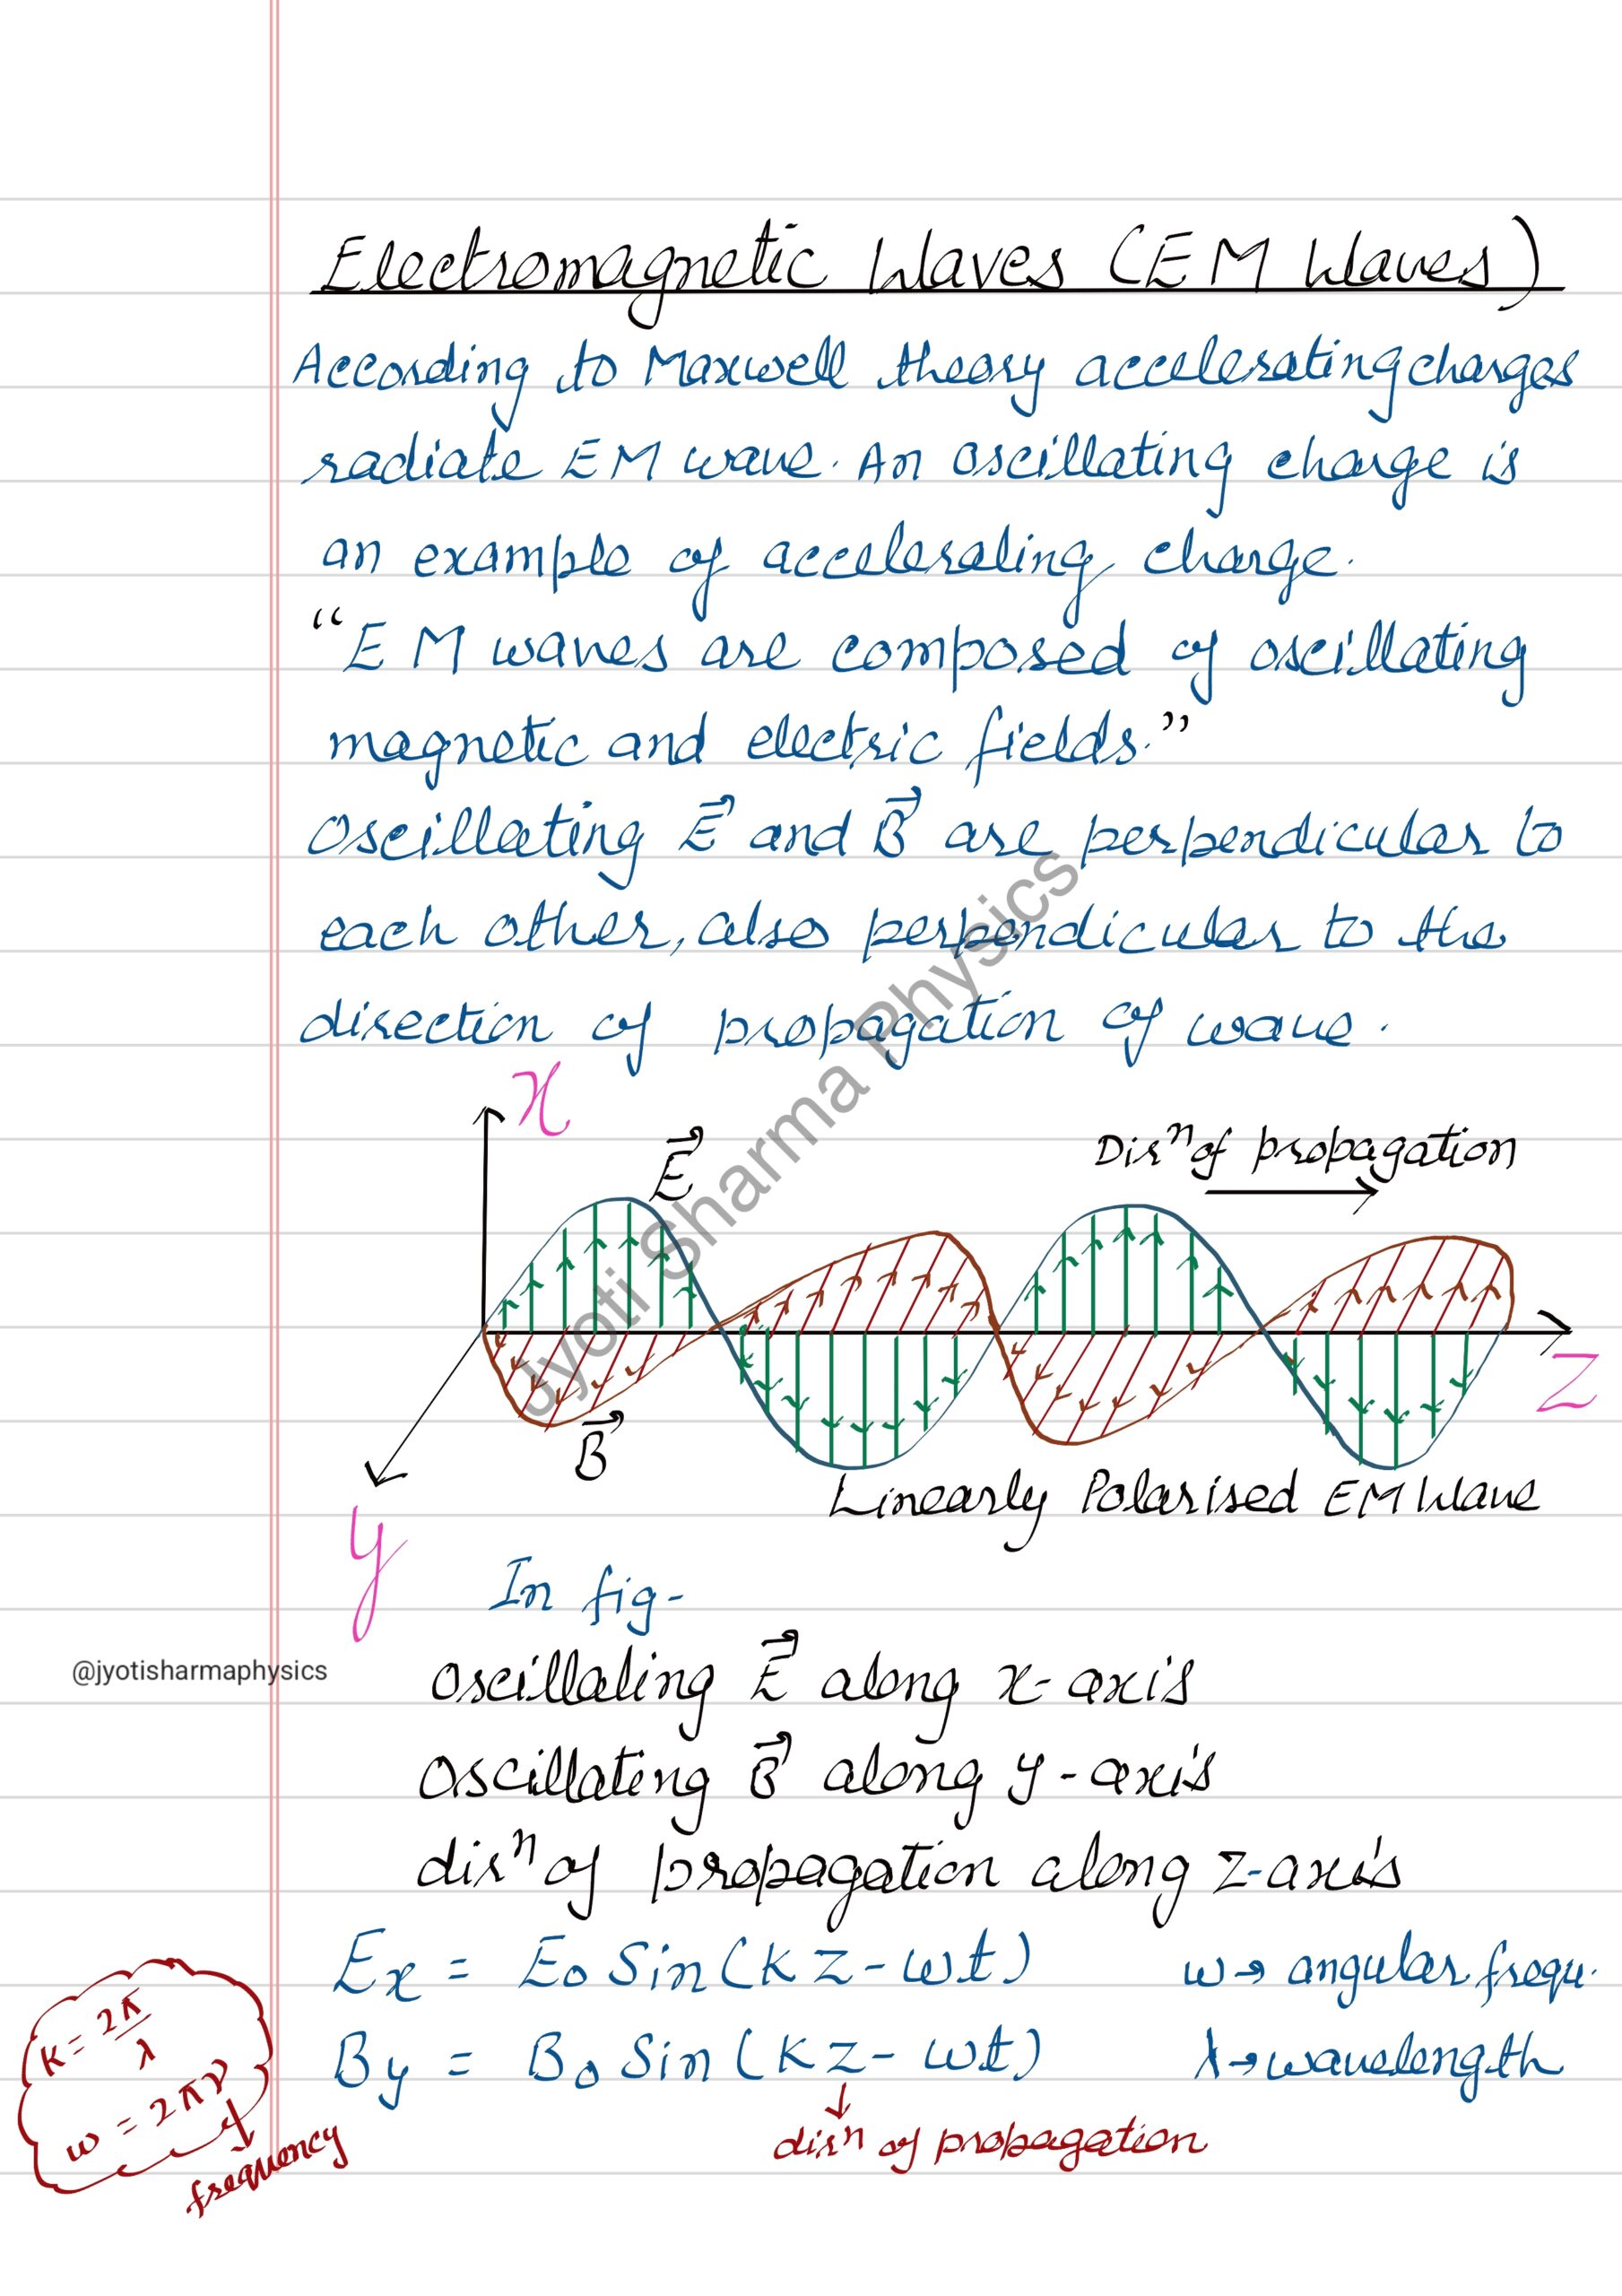 Electromagnetic Waves (EM Waves)
According to Maxwell theory accelerating charges
radiate EM wave. An oscillating charge is
an example of accelerating charge.
“EM waves are composed of oscillating
magnetic and electric fields.”
Oscillating E⃗ and B⃗ are perpendicular to
each other, also perpendicular to the
direction of propagation of wave.
x
E⃗
Dirⁿ of propagation
z
B⃗
Linearly Polarised EM Wave
y
In fig-
@jyotisharmaphysics
Oscillating E⃗ along x-axis
Oscillating B⃗ along y-axis
dirⁿ of propagation along z-axis
Ex = E₀ Sin(kz-ωt)
ω→ angular frequ.
K = 2π/λ
By = B₀ Sin(kz-ωt)
λ→wavelength
ω = 2πν
dirⁿ of propagation
frequency
Jyoti Sharma Physics